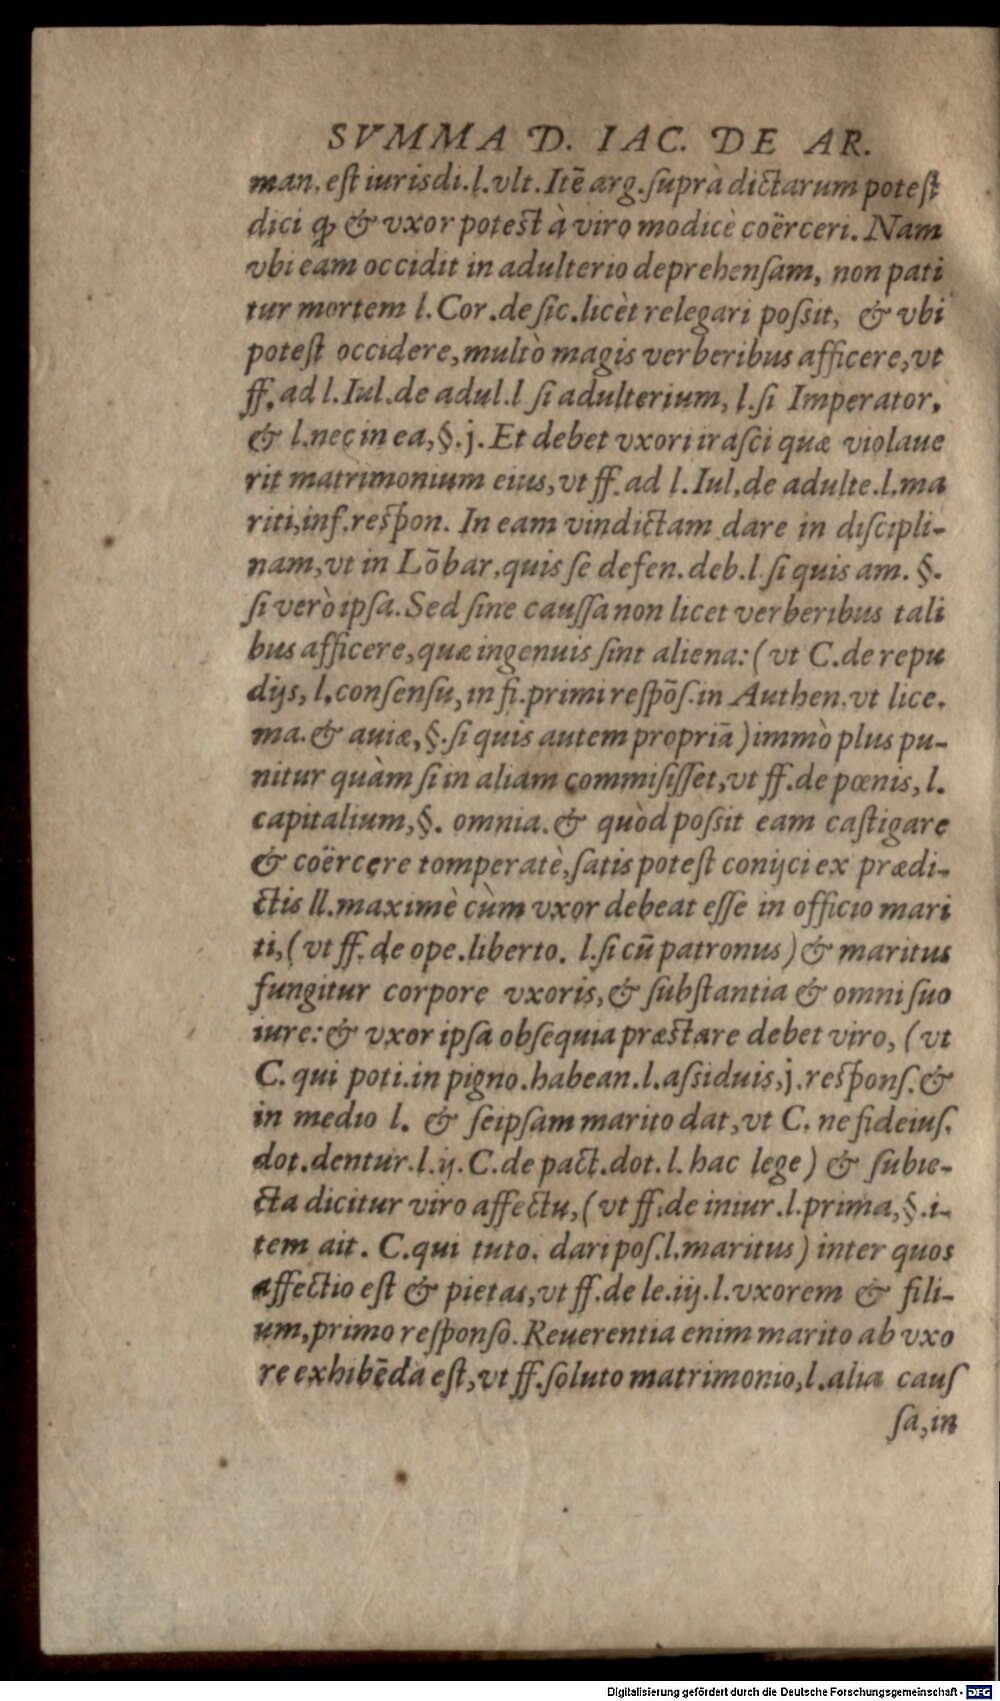 SVMMA D. IAC. DE AR.
man. est iurisdi. l. vlt. Itē arg. suprà dictarum potest
dici ꝙ & vxor potest à viro modicè coërceri. Nam
vbi eam occidit in adulterio deprehensam, non pati
tur mortem l. Cor. de sic. licèt relegari possit, & vbi
potest occidere, multò magis verberibus afficere, vt
ff. ad l. Iul. de adul. l si adulterium, l. si Imperator,
& l. nec in ea, §. j. Et debet vxori irasci quæ violaue
rit matrimonium eius, vt ff. ad l. Iul. de adulte. l. ma
riti, inf. respon. In eam vindictam dare in discipli-
nam, vt in Lōbar. quis se defen. deb. l. si quis am. §.
si verò ipsa. Sed sine caussa non licet verberibus tali
bus afficere, quæ ingenuis sint aliena: (vt C. de repu
dijs, l. consensu, in fi. primi respōs. in Authen. vt lice.
ma. & auiæ, §. si quis autem propriā) immò plus pu-
nitur quàm si in aliam commisisset, vt ff. de pœnis, l.
capitalium, §. omnia. & quòd possit eam castigare
& coërcere tomperatè, satis potest conijci ex prædi-
ctis ll. maximè cùm vxor debeat esse in officio mari
ti, (vt ff. de ope. liberto. l. si cū patronus) & maritus
fungitur corpore vxoris, & substantia & omni suo
iure: & vxor ipsa obsequia præstare debet viro, (vt
C. qui poti. in pigno. habean. l. assiduis, j. respons. &
in medio l. & seipsam marito dat, vt C. ne fideius.
dot. dentur. l. ij. C. de pact. dot. l. hac lege) & subie-
cta dicitur viro affectu, (vt ff. de iniur. l. prima, §. i-
tem ait. C. qui tuto. dari pos. l. maritus) inter quos
affectio est & pietas, vt ff. de le. iij. l. vxorem & fili-
um, primo responso. Reuerentia enim marito ab vxo
re exhibēda est, vt ff. soluto matrimonio, l. alia caus
sa, in
Digitalisierung gefördert durch die Deutsche Forschungsgemeinschaft - DFG